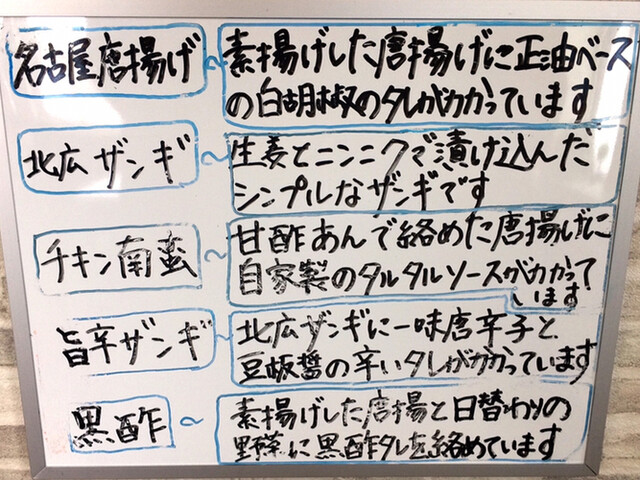 名古屋唐揚げ～素揚げした唐揚げに正油ベース
の白胡椒のタレがかかっています
北広ザンギ～生姜とニンニクで漬け込んだ
シンプルなザンギです
チキン南蛮～甘酢あんで絡めた唐揚げに
自家製のタルタルソースがかかって
います
旨辛ザンギ～北広ザンギに一味唐辛子と
豆板醤の辛いタレがかかっています
黒酢～素揚げした唐揚と日替わりの
野菜に黒酢タレを絡めています